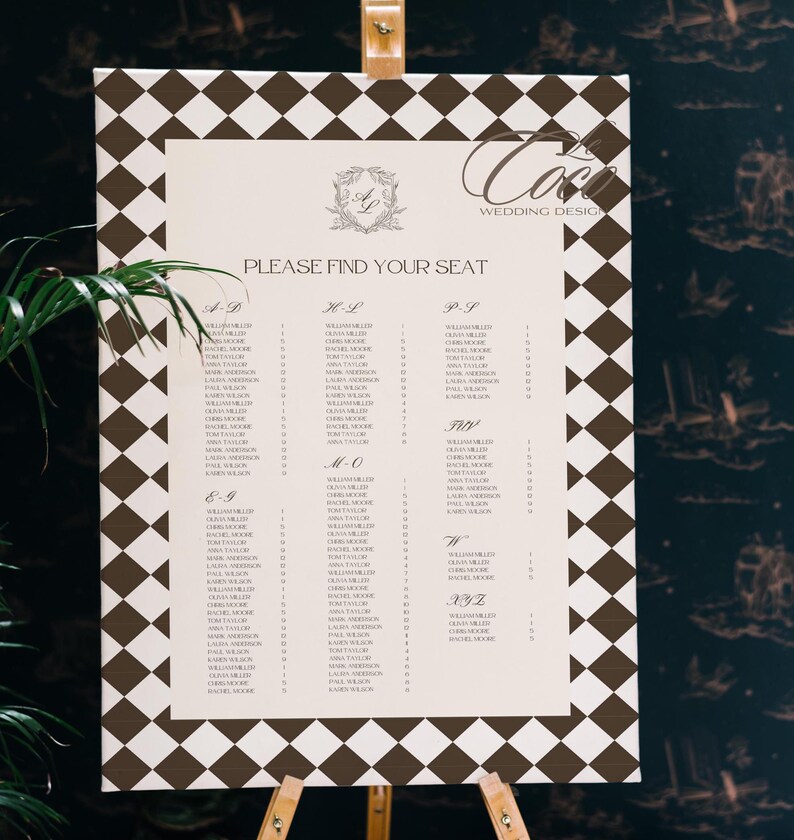 Le
Coco
WEDDING DESIGN
A
L
PLEASE FIND YOUR SEAT
A-D
WILLIAM MILLER 1
OLIVIA MILLER 1
CHRIS MOORE 5
RACHEL MOORE 5
TOM TAYLOR 9
ANNA TAYLOR 9
MARK ANDERSON 12
LAURA ANDERSON 12
PAUL WILSON 9
KAREN WILSON 9
WILLIAM MILLER 1
OLIVIA MILLER 1
CHRIS MOORE 5
RACHEL MOORE 5
TOM TAYLOR 9
ANNA TAYLOR 9
MARK ANDERSON 12
LAURA ANDERSON 12
PAUL WILSON 9
KAREN WILSON 9
E-G
WILLIAM MILLER 1
OLIVIA MILLER 1
CHRIS MOORE 5
RACHEL MOORE 5
TOM TAYLOR 9
ANNA TAYLOR 9
MARK ANDERSON 12
LAURA ANDERSON 12
PAUL WILSON 9
KAREN WILSON 9
WILLIAM MILLER 1
OLIVIA MILLER 1
CHRIS MOORE 5
RACHEL MOORE 5
TOM TAYLOR 9
ANNA TAYLOR 9
MARK ANDERSON 12
LAURA ANDERSON 12
PAUL WILSON 9
KAREN WILSON 9
WILLIAM MILLER 1
OLIVIA MILLER 1
CHRIS MOORE 5
RACHEL MOORE 5
H-L
WILLIAM MILLER 1
OLIVIA MILLER 1
CHRIS MOORE 5
RACHEL MOORE 5
TOM TAYLOR 9
ANNA TAYLOR 9
MARK ANDERSON 12
LAURA ANDERSON 12
PAUL WILSON 9
KAREN WILSON 9
WILLIAM MILLER 4
OLIVIA MILLER 4
CHRIS MOORE 7
RACHEL MOORE 7
TOM TAYLOR 8
ANNA TAYLOR 8
M-O
WILLIAM MILLER 1
OLIVIA MILLER 1
CHRIS MOORE 5
RACHEL MOORE 5
TOM TAYLOR 9
ANNA TAYLOR 9
WILLIAM MILLER 12
OLIVIA MILLER 12
CHRIS MOORE 9
RACHEL MOORE 9
TOM TAYLOR 4
ANNA TAYLOR 4
WILLIAM MILLER 7
OLIVIA MILLER 7
CHRIS MOORE 8
RACHEL MOORE 8
TOM TAYLOR 10
ANNA TAYLOR 10
MARK ANDERSON 12
LAURA ANDERSON 12
PAUL WILSON 11
KAREN WILSON 11
TOM TAYLOR 4
ANNA TAYLOR 4
MARK ANDERSON 6
LAURA ANDERSON 6
PAUL WILSON 8
KAREN WILSON 8
P-S
WILLIAM MILLER 1
OLIVIA MILLER 1
CHRIS MOORE 5
RACHEL MOORE 5
TOM TAYLOR 9
ANNA TAYLOR 9
MARK ANDERSON 12
LAURA ANDERSON 12
PAUL WILSON 9
KAREN WILSON 9
WILLIAM MILLER 1
OLIVIA MILLER 1
CHRIS MOORE 5
RACHEL MOORE 5
TOM TAYLOR 9
ANNA TAYLOR 9
MARK ANDERSON 12
LAURA ANDERSON 12
PAUL WILSON 9
KAREN WILSON 9
W
WILLIAM MILLER 1
OLIVIA MILLER 1
CHRIS MOORE 5
RACHEL MOORE 5
XYZ
WILLIAM MILLER 1
OLIVIA MILLER 1
CHRIS MOORE 5
RACHEL MOORE 5